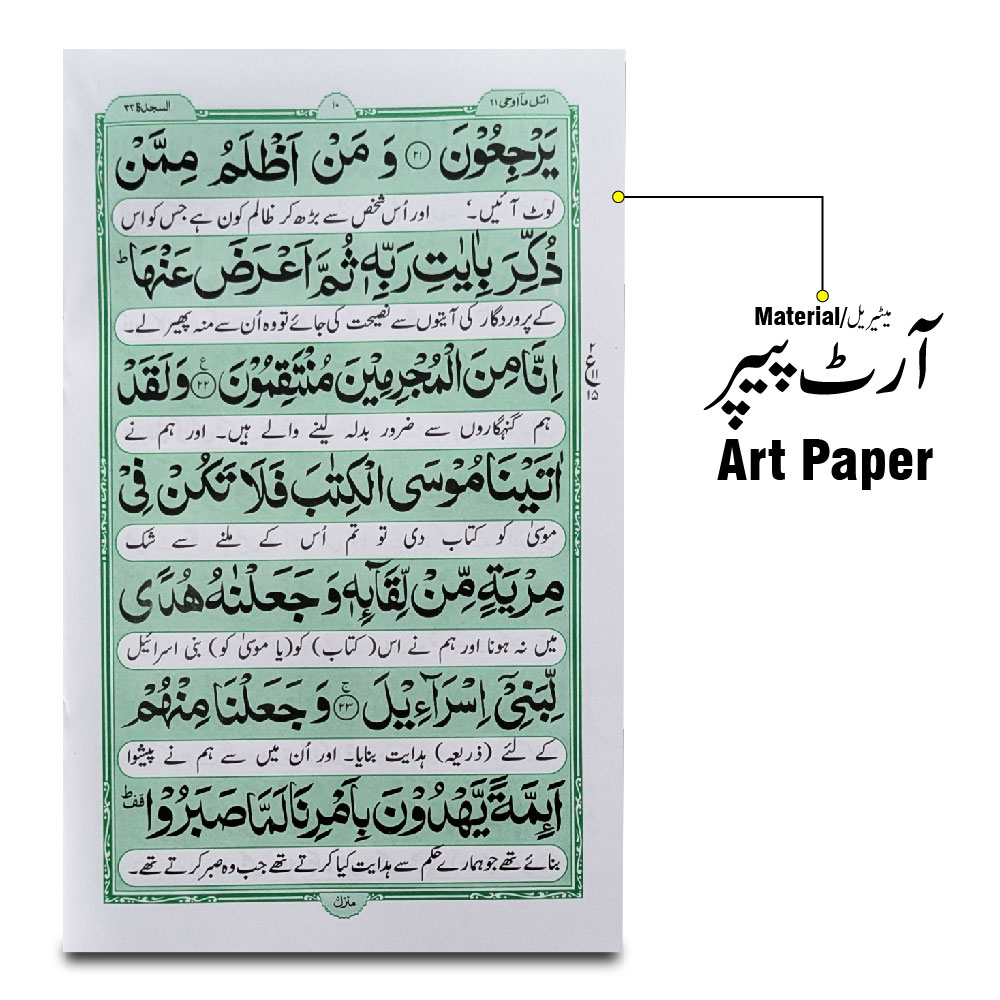 اتل مآ اوحی ٢١
١٠
السجدة ٣٢
يَرْجِعُوْنَ ﴿٢١﴾ وَ مَنْ اَظْلَمُ مِمَّنْ
لوٹ آئیں۔‘ اور اُس شخص سے بڑھ کر ظالم کون ہے جس کو اس
ذُكِّرَ بِاٰيٰتِ رَبِّهٖ ثُمَّ اَعْرَضَ عَنْهَا ؕ
کے پروردگار کی آیتوں سے نصیحت کی جائے تو وہ اُن سے منہ پھیر لے۔
اِنَّا مِنَ الْمُجْرِمِيْنَ مُنْتَقِمُوْنَ ﴿٢٢﴾ ع وَلَقَدْ
ہم گنہگاروں سے ضرور بدلہ لینے والے ہیں۔ اور ہم نے
اٰتَيْنَا مُوْسَى الْكِتٰبَ فَلَا تَكُنْ فِيْ
موسیٰ کو کتاب دی تو تم اُس کے ملنے سے شک
مِرْيَةٍ مِّنْ لِّقَآئِهٖ وَ جَعَلْنٰهُ هُدًى
میں نہ ہونا اور ہم نے اس( کتاب) کو(یا موسیٰ کو) بنی اسرائیل
لِّبَنِيْۤ اِسْرَآءِيْلَ ﴿٢٣﴾ ج وَ جَعَلْنَا مِنْهُمْ
کے لئے (ذریعہ) ہدایت بنایا۔ اور اُن میں سے ہم نے پیشوا
اَئِمَّةً يَّهْدُوْنَ بِاَمْرِنَا لَمَّا صَبَرُوْا ؕ قف
بنائے تھے جو ہمارے حکم سے ہدایت کیا کرتے تھے جب وہ صبر کرتے تھے۔
٢
ع
١١
١٥
Material/میٹیریل
آرٹ پیپر
Art Paper